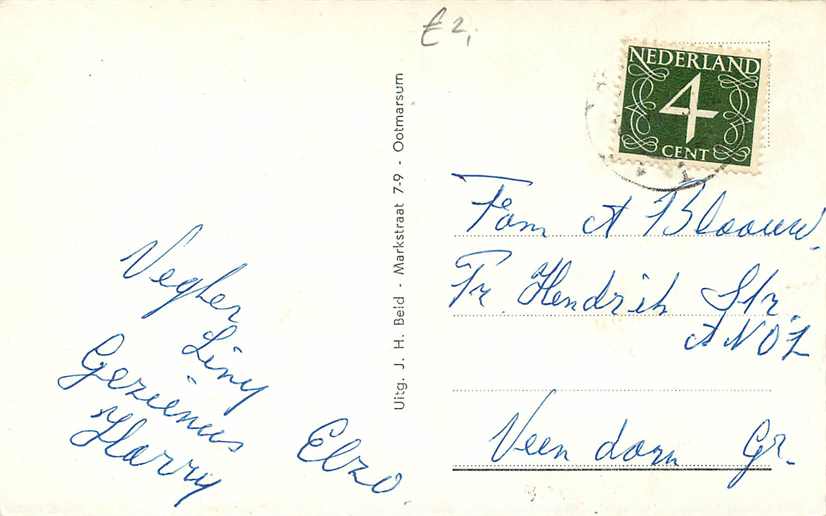 £ 2,
NEDERLAND
4
CENT
Uitg. J. H. Beld - Markstraat 7-9 - Ootmarsum
Fam A Blaauw.
Pr. Hendrik Str.
A NO 2
Veendam Gr.
Vegter
Liny
Gezienus
Harry
Elzo.